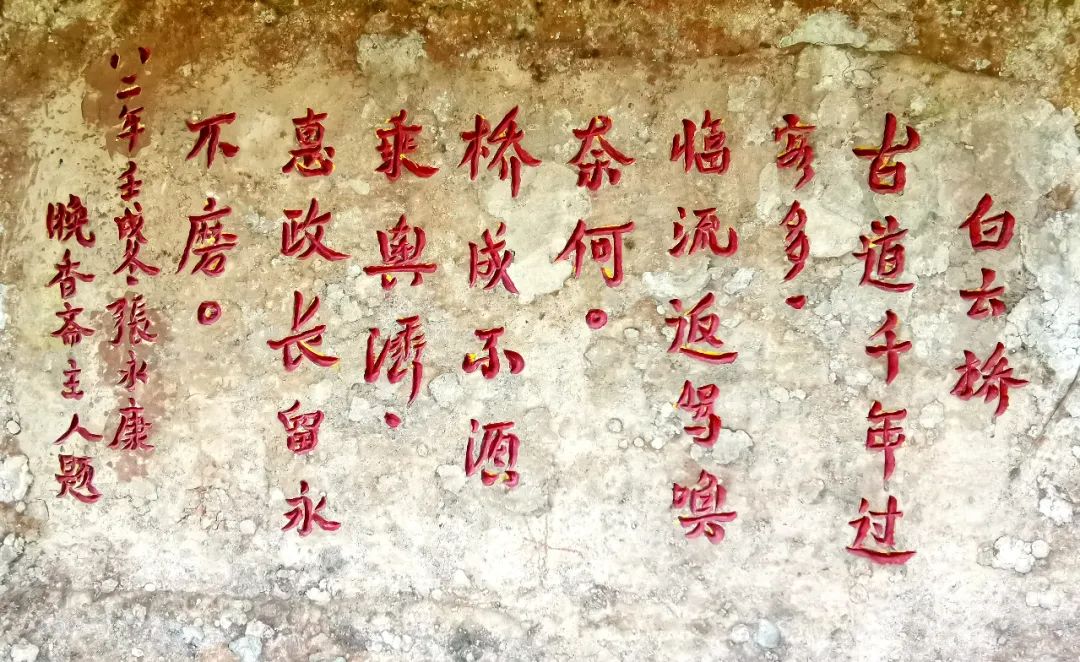 白云桥
古道千年过
客多.
临流返驾唤
奈何。
桥成不须
乘舆济.
惠政长留永
不磨。
八二年壬戌冬张永康
晚香斋主人题